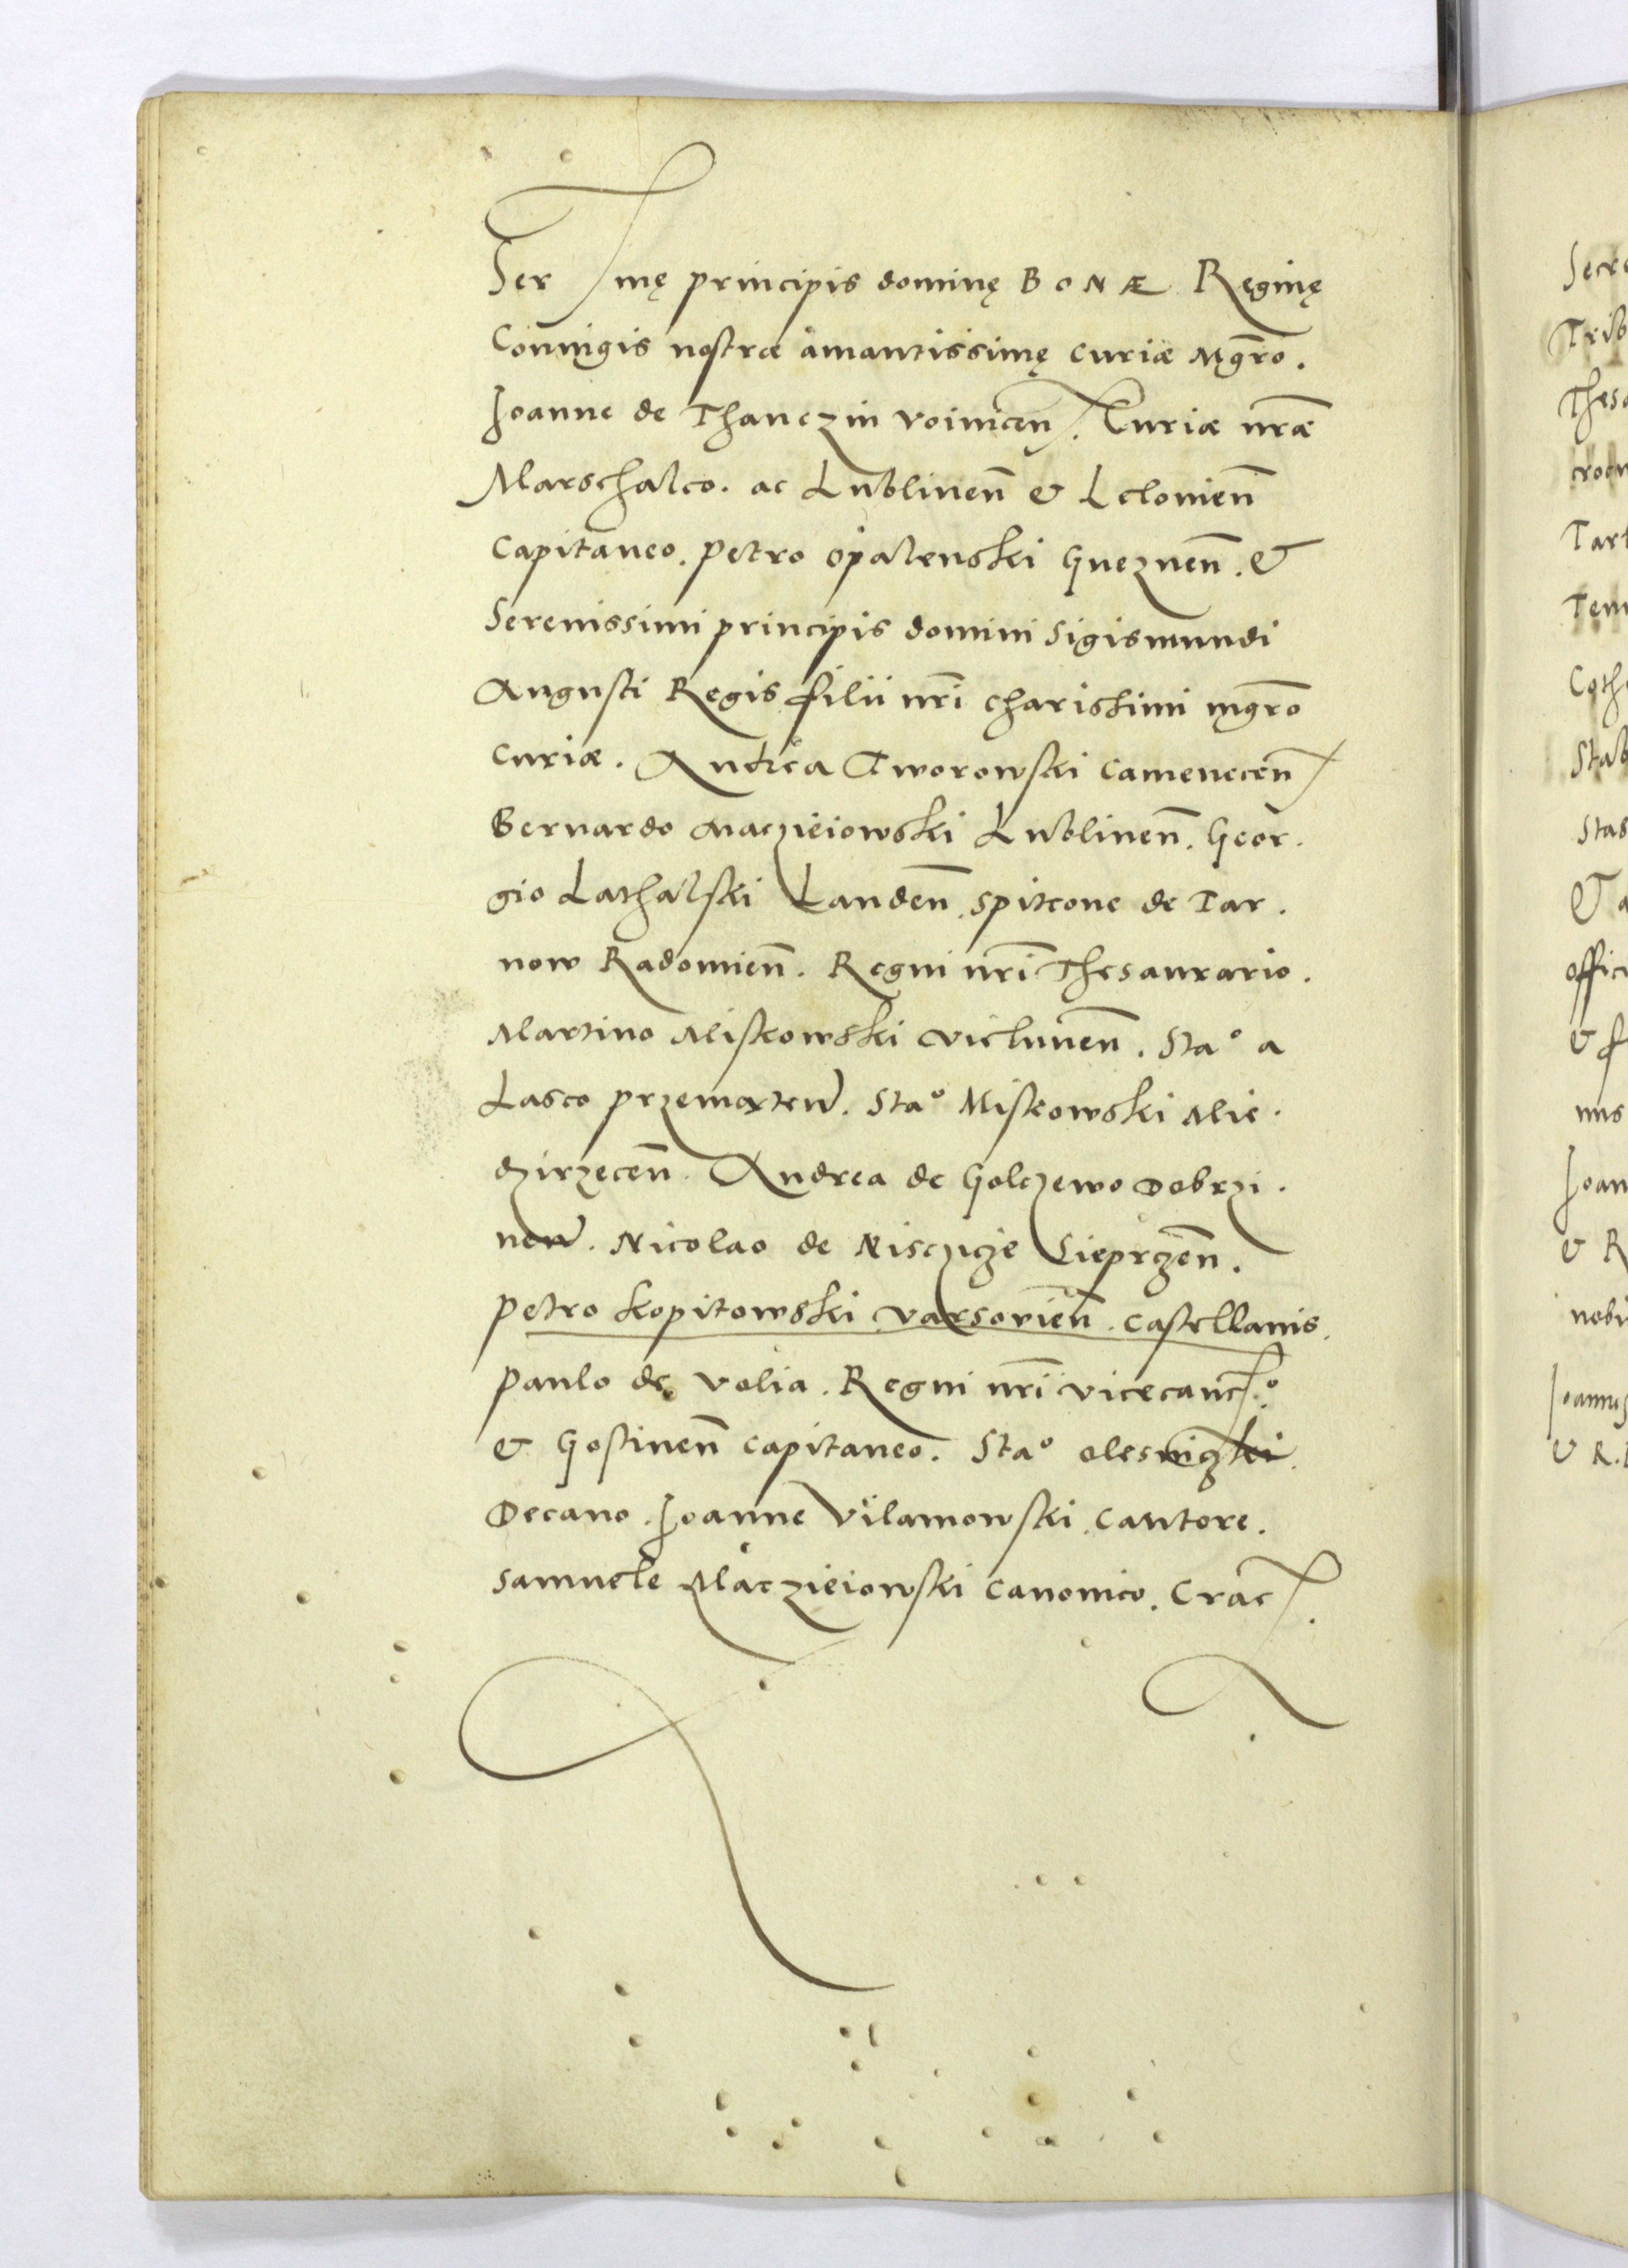 Ser mę principis dominę BONÆ Reginę
Coniugis nostræ amantissimę curiæ Mgr̄o.
Joanne de Thanczin voinicen̄. Curiæ nr̄æ
Marschalco. ac Lublinen̄ & Lelouien̄
Capitaneo. Petro opalenski Gneznen̄. &
Serenissimi principis domini Sigismundi
Augusti Regis filii nr̄i charissimi mgr̄o
curiæ. Andrea Tworowski camenecen̄
Bernardo Maczieiowski Lublinen̄. Geor.
gio Lathalski Landen̄. Spitcone de Tar.
now Radomien̄. Regni nr̄i Thesaurario.
Martino Miskowski vielunen̄. Stao a
Lasco przemęten̄. Stao Miskowski Mie.
dzirzecen̄. Andrea de Golczewo Dobrzi.
nen̄. Nicolao de Nisczicze Sieprczen̄.
Petro kopitowski varsovien̄. castellanis.
Paulo de volia. Regni nr̄i vicecanc.o
& Gostinen̄ capitaneo. Stao olesniczki.
Decano. Joanne Vilamowski. cantore.
Samuele Maczieiowski canonico. Crac.
Secre
Trib
Thesa
croc
Tart
Tem
Cath
Stab
Stas
Et a
offici
& f
nus
Joan
& R
nobi
Joannis
& R.